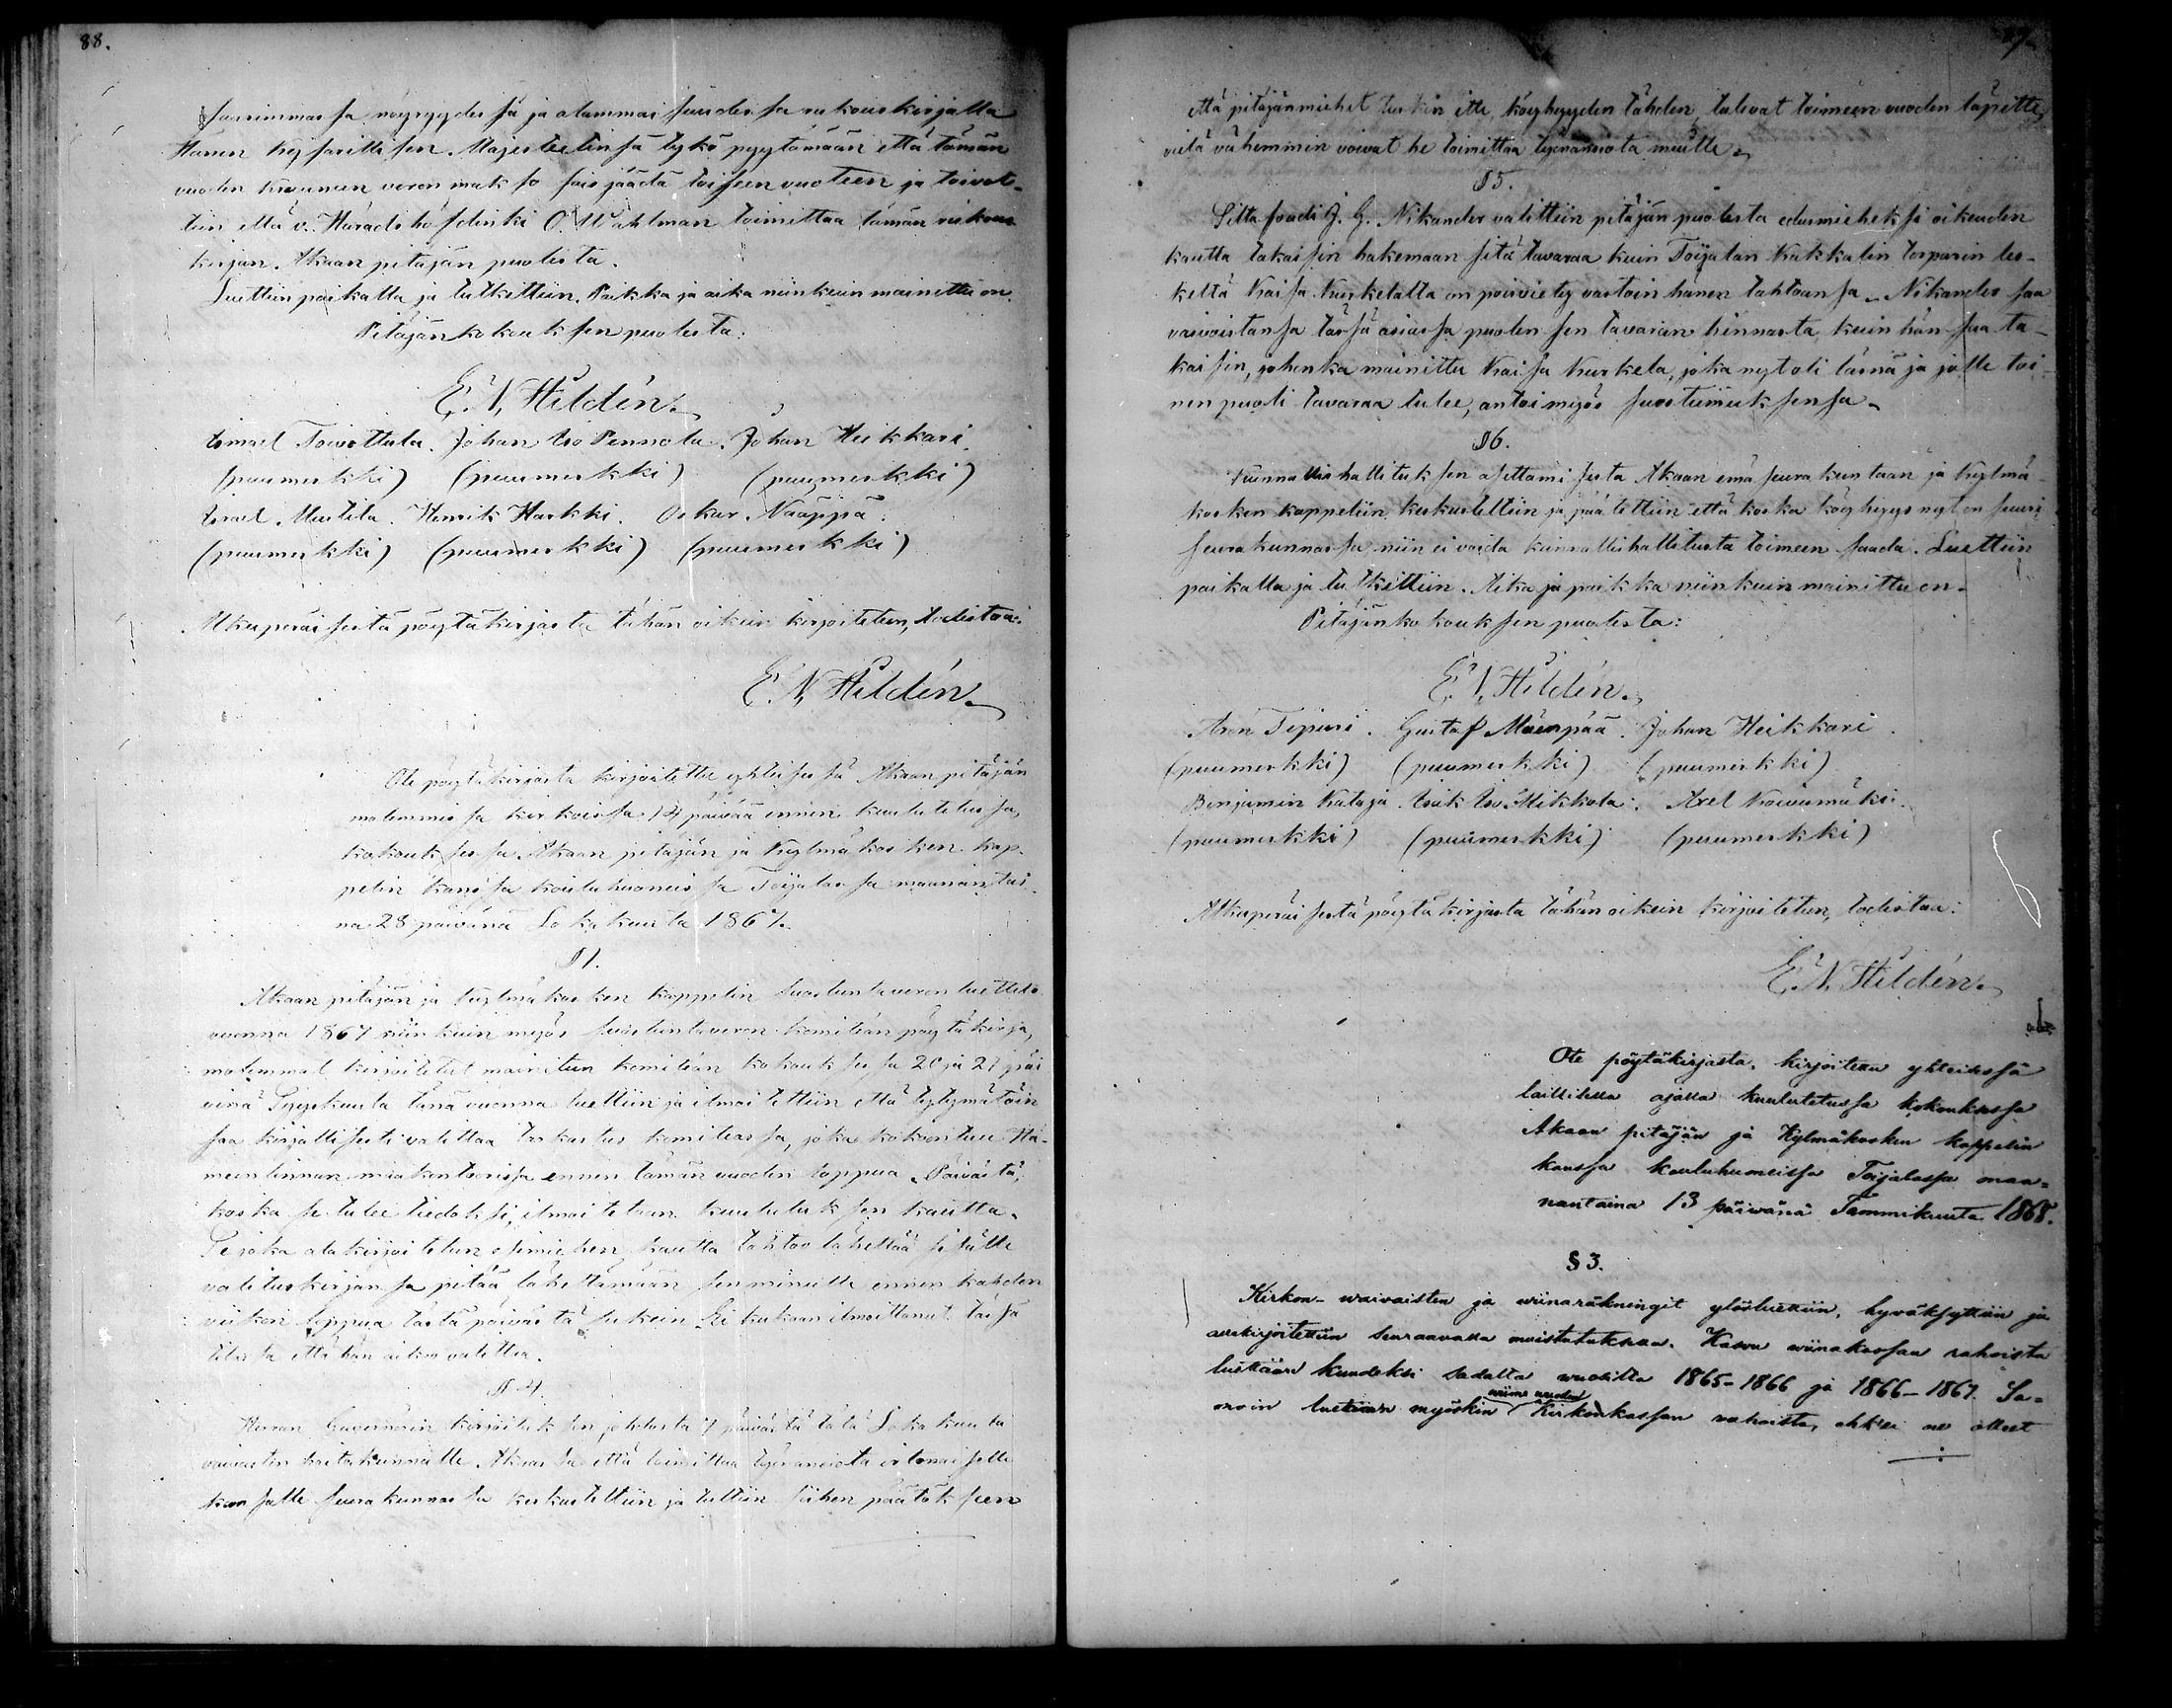 88.
suurimmassa nöyryydessä ja alammaisuudessa rukouskirjalla
Hänen Keisarillisen Majesteetinsä tykö pyytämään että tämän
vuoden kruunun veron makso sais jäädä toiseen vuoteen ja toivot-
tiin että v. Häradshöfdinki O. Wahlman toimittaa tämän rukous
kirjan Akaan pitäjän puolesta.
Luettiin paikalla ja tutkittiin. Paikka ja aika niinkuin mainittu on.
Pitäjänkokouksen puolesta:
E. N. Hildén.
Ismael Toivottula. Johan Iso Pennola. Johan Heikkari.
(puumerkki) (puumerkki) (puumerkki)
Israel Mustila. Henrik Harkki. Oskar Nääppä.
(puumerkki) (puumerkki) (puumerkki)
Alkuperäisestä pöytäkirjasta tähän oikein kirjoitetun, todistaa:
E. N. Hildén.
Ote pöytäkirjasta kirjoitettu yhteisessä Akaan pitäjän
molemmissa kirkoissa 14 päivää ennen kuulutetussa,
kokouksessa Akaan pitäjän ja Kylmäkosken kap-
pelin kanssa kouluhuoneissa Toijalassa maanantai-
na 28 päivänä Lokakuuta 1867.
§ 1.
Akaan pitäjän ja Kylmäkosken kappelin suostuntaveron luettelo
vuonna 1867 niinkuin myös suostuntaveron komitean pöytäkirja,
molemmat kirjoitetut mainitun komitean kokouksessa 26 ja 27 päi
vinä Syyskuuta tänä vuonna luettiin ja ilmoitettiin että tytymätöin
saa kirjallisesti valittaa tarkastus komiteassa, joka kokoontuu Hä-
meenlinnan maakontoorissa ennen tämän vuoden loppua. Päivästä,
koska se tulee tiedoksi, ilmoitetaan kuulutuksen kautta.
Se joka alakirjoitetun esimiehen kautta tahtoo lähettää sitälle
valituskirjansa pitää lähettämään sen minulle ennen kahden
viikon loppua tästä päivästä lukein. Ei kukaan ilmoittanut tässä
tilassa että hän aikoo valittaa.
§ 4.
Herran Guvernörin kirjoituksen johdosta 7 päivästä tätä Lokakuuta
vaivasten hoitokunnalle Akaassa että toimittaa työnansiota irtonaiselle
kansalle seurakunnassa keskusteltiin ja tultiin siihen päätökseen
että pitäjänmiehet tuskin itte, köyhyyden tähden, tulevat toimeen vuoden läpitte,
vielä vähemmin voivat he toimittaa työnansiota muille.
§ 5.
Siltafoudi J. G. Nikander valittiin pitäjän puolesta edusmieheksi oikeuden
kautta takaisin hakemaan sitä tavaraa kuin Toijalan Kakkalin torparin les-
keltä Kaisa Kurkelalta on poisviety vastoin hänen tahtoansa. Nikander saa
vaivoistansa tässä asiassa puolen sen tavaran hinnasta, kuin hän saa ta-
kaisin, johonka mainittu Kaisa Kurkela, joka nyt oli läsnä ja jolle toi-
nen puoli tavaraa tulee, antoi myös suostumuksensa.
§ 6.
Kunnallishallituksen asettamisesta Akaan emäseurakuntaan ja Kylmä-
kosken kappeliin keskusteltiin ja päätettiin että koska köyhyys nyt on suuri
seurakunnassa niin ei voida kunnallishallitusta toimeen saada. Luettiin
paikalla ja tutkittiin. Aika ja paikka niinkuin mainittu on.
Pitäjänkokouksen puolesta:
E. N. Hildén.
Aron Tipuri. Gustaf Mäenpää. Johan Heikkari.
(puumerkki) (puumerkki) (puumerkki)
Benjamin Kataja. Isak Iso Mikkola. Axel Koivumäki.
(puumerkki) (puumerkki) (puumerkki)
Alkuperäisestä pöytäkirjasta tähän oikein kirjoitetun, todistaa:
E. N. Hildén.
Ote pöytäkirjasta, kirjoitettu yhteisessä
laillisella ajalla kuulutetussa kokouksessa
Akaan pitäjän ja Kylmäkosken kappelin
kanssa kouluhuoneissa Toijalassa maa=
nantaina 13 päivänä Tammikuuta 1868.
§ 3.
Kirkon- waivaisten ja viinaräkningit ylösluettiin, hyväksyttiin ja
allekirjoitettiin seuraavalla muistutuksella. Kasvu viinakassan rahoista
luetaan kuudeksi sadalta vuosilta 1865-1866 ja 1866-1867. Sa=
moin luetaan myöskin viime vuoden Kirkonkassan rahoista, ehk'ei ne olleet